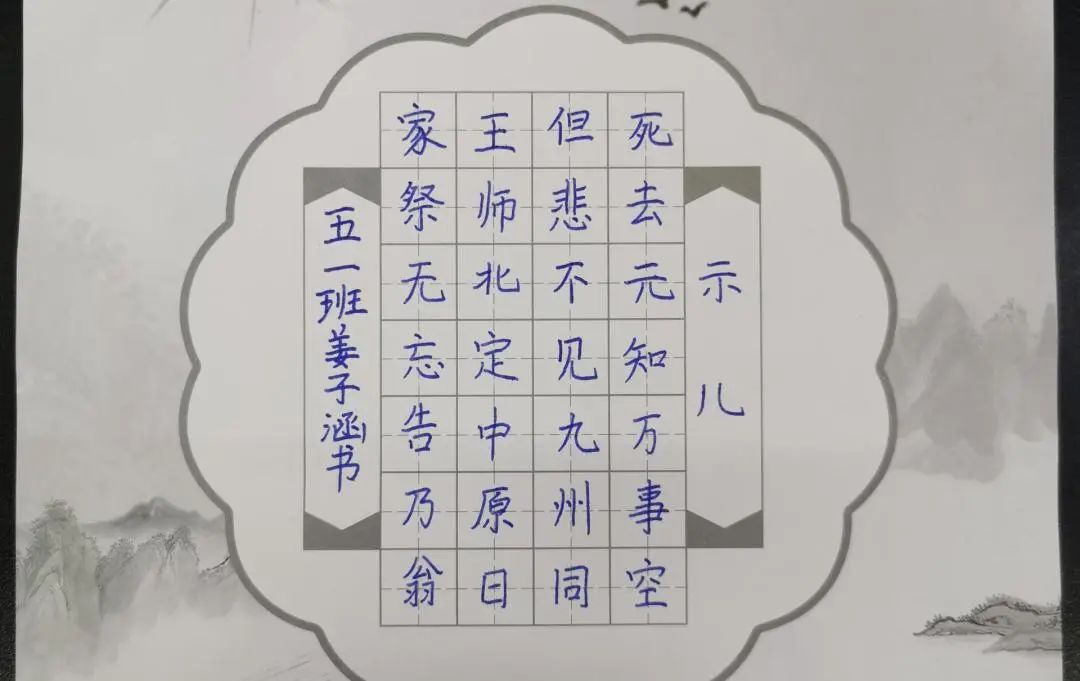 示儿
死去元知万事空
但悲不见九州同
王师北定中原日
家祭无忘告乃翁
五一班姜子涵书